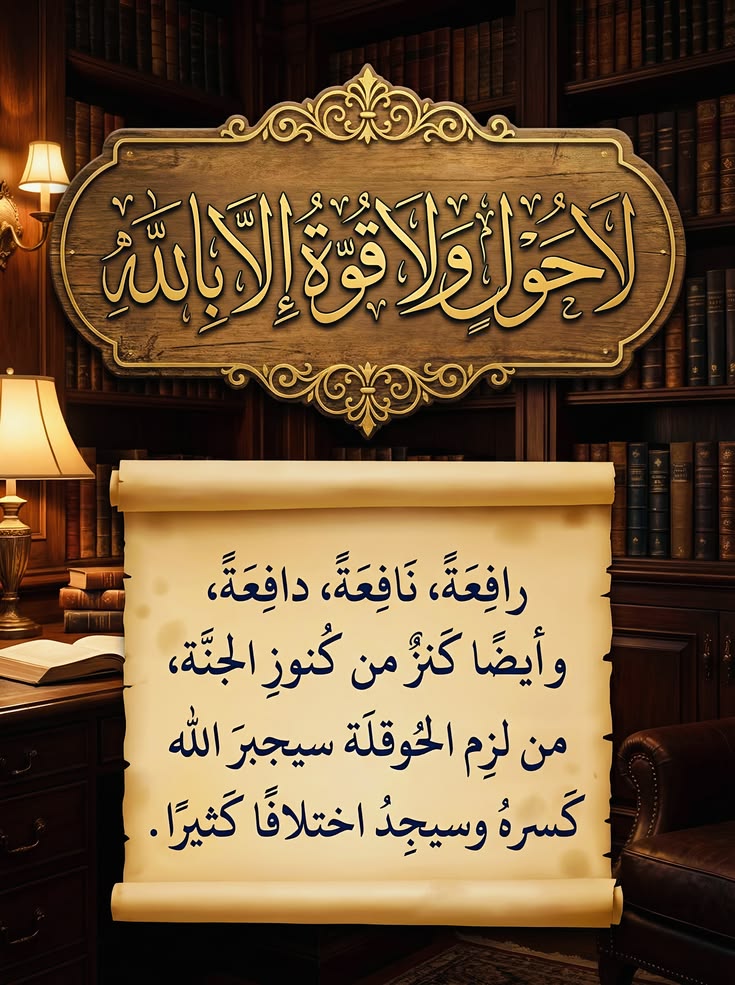 لَا حَوْلَ وَلَا قُوَّةَ إِلَّا بِاللَّهِ
رافِعَةً، نَافِعَةً، دافِعَةً،
وأيضًا كَنزٌ من كُنوزِ الجنَّة،
من لزِم الحُوقلَة سيجبرَ الله
كَسرهُ وسيجِدُ اختلافًا كَثيرًا.